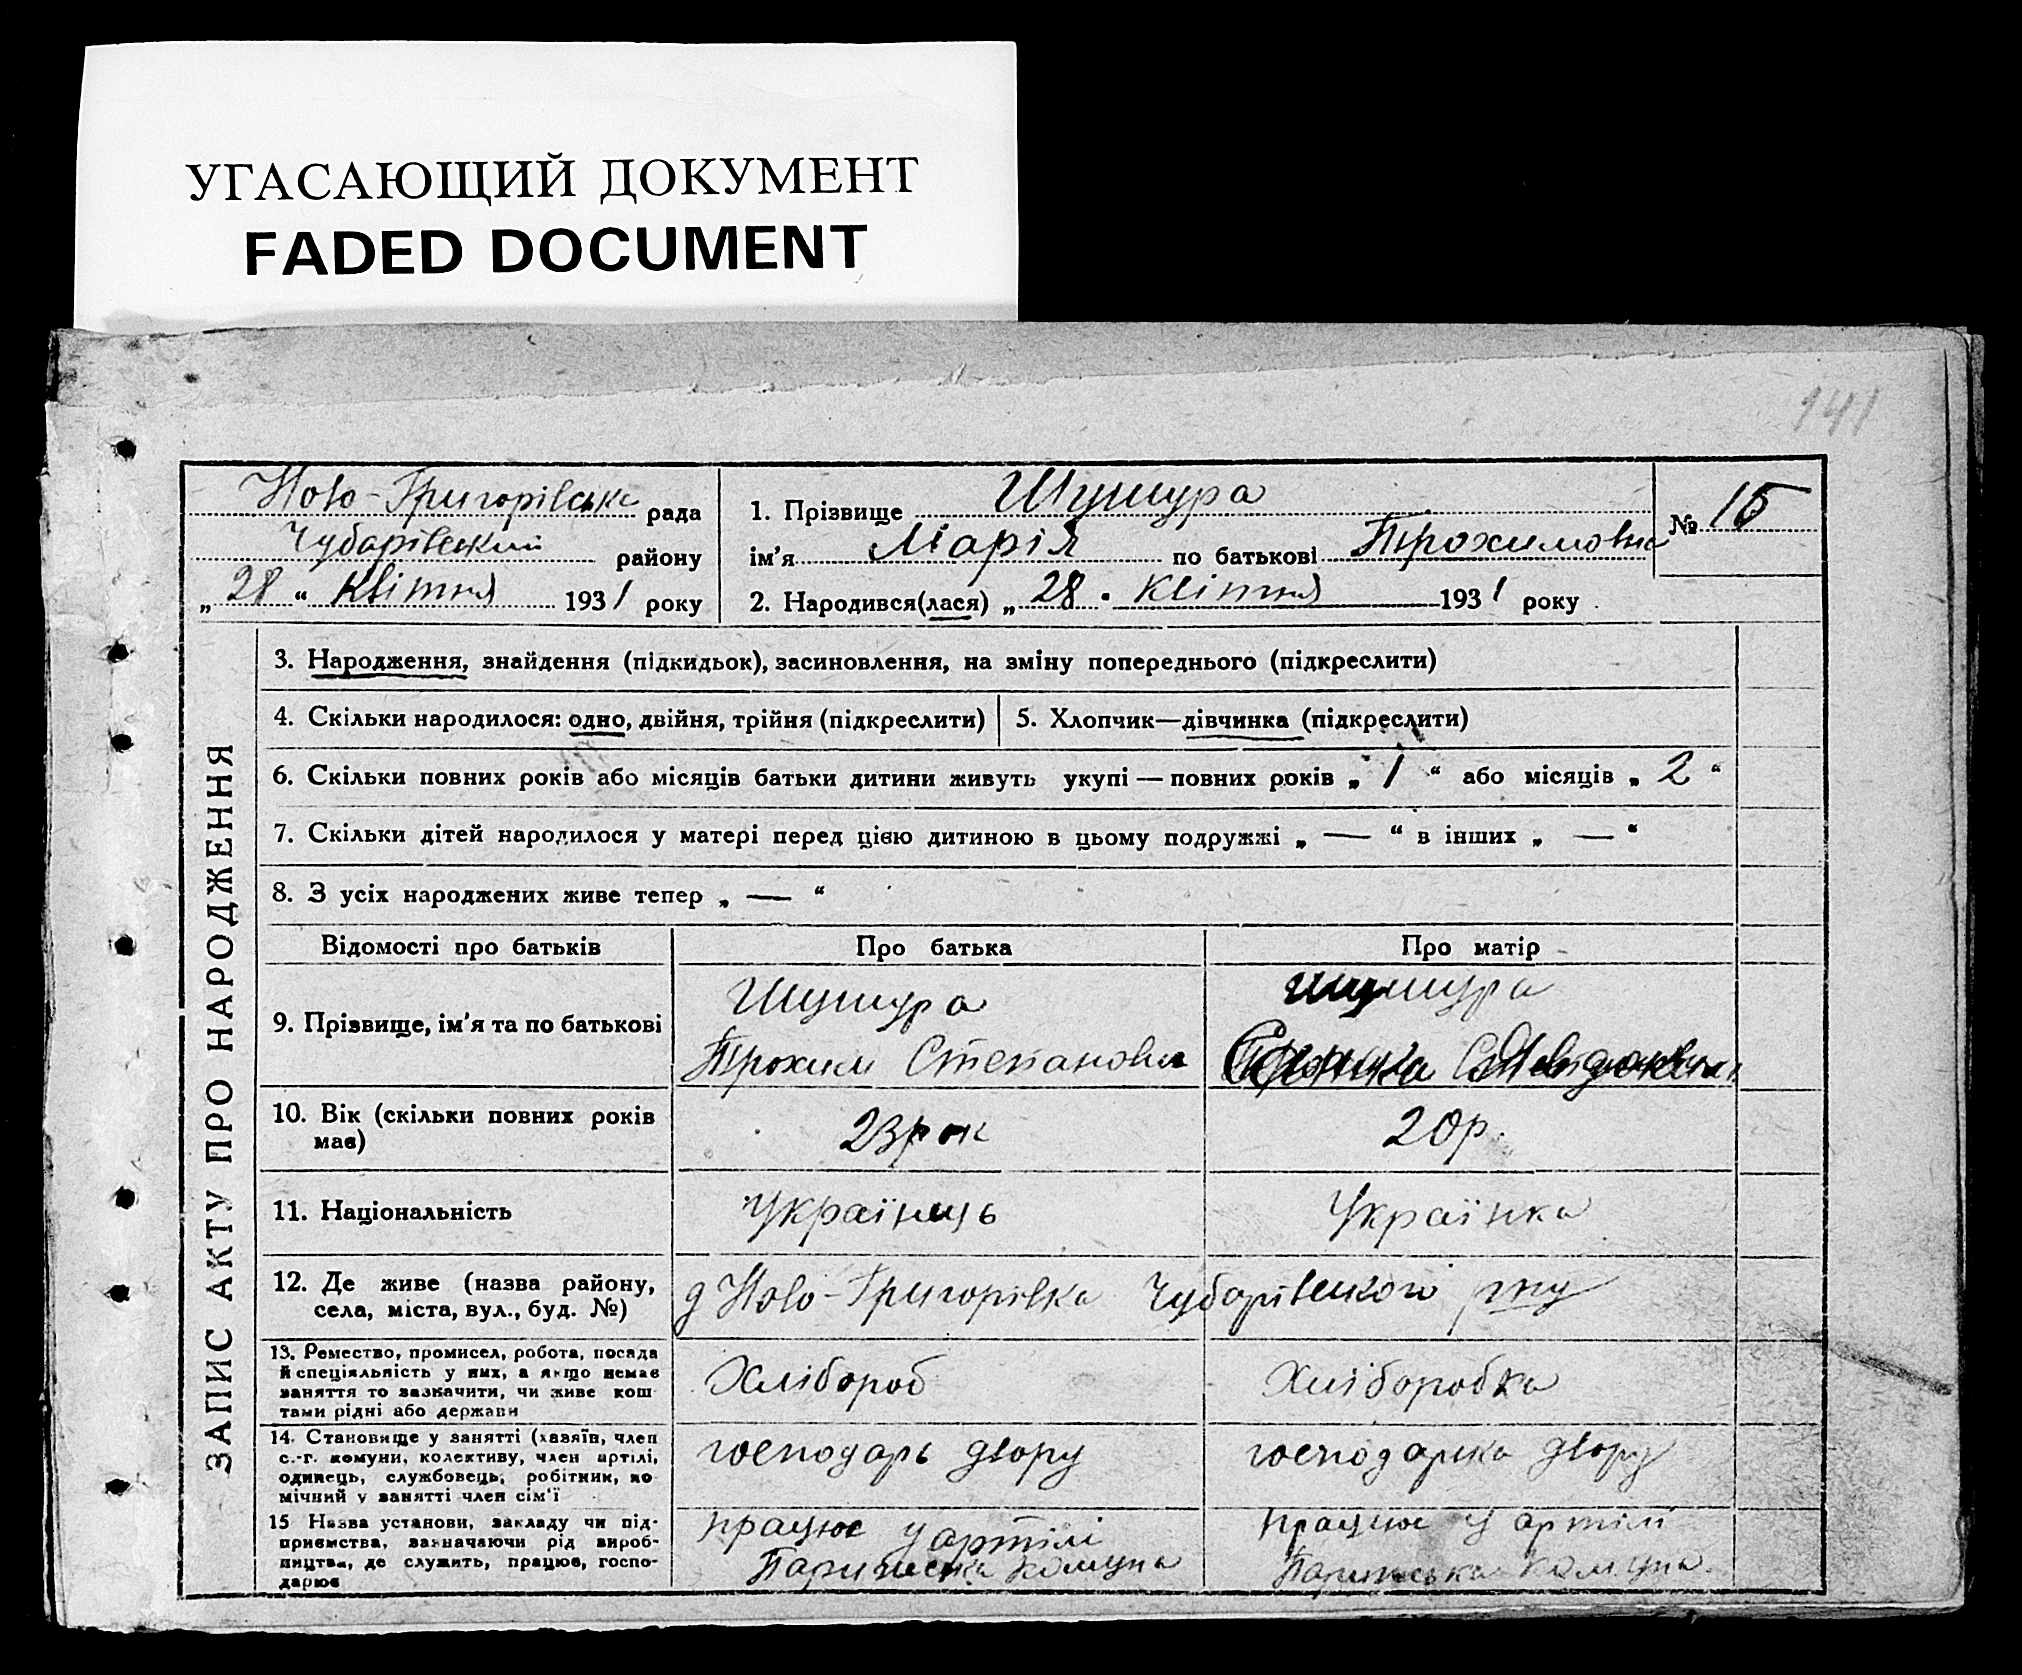 УГАСАЮЩИЙ ДОКУМЕНТ
FADED DOCUMENT
141
Ново-Григорівська рада
Чубарівський району
„ 28 “ Квітня 1931 року
1. Прізвище Шушура
ім’я Марія по батькові Трохимовна
2. Народився(лася) „ 28 . Квітня 1931 року
№ 15
ЗАПИС АКТУ ПРО НАРОДЖЕННЯ
3. Народження, знайдення (підкидьок), засиновлення, на зміну попереднього (підкреслити)
4. Скільки народилося: одно, двійня, трійня (підкреслити)
5. Хлопчик—дівчинка (підкреслити)
6. Скільки повних років або місяців батьки дитини живуть укупі — повних років „ 1 “ або місяців „ 2 “
7. Скільки дітей народилося у матері перед цією дитиною в цьому подружжі „ — “ в інших „ — “
8. З усіх народжених живе тепер „ — “
Відомості про батьків
Про батька
Про матір
9. Прізвище, ім’я та по батькові
Шушура
Трохим Степанови
Шушура
10. Вік (скільки повних років
має)
23 рок
20 р.
11. Національність
Українець
Українка
12. Де живе (назва району,
села, міста, вул., буд. №)
Ново-Григорівка Чубарівського р-ну
13. Ремество, промисел, робота, посада
й спеціяльність у них, а якщо немає
заняття то зазначити, чи живе кош-
тами рідні або держави
Хлібороб
Хліборобка
14. Становище у занятті (хазяїн, член
с.-г. комуни, колективу, член артілі,
одинець, службовець, робітник, по-
мічний у занятті член сім’ї
господарь двору
господарка двору
15 Назва установи, закладу чи під-
приємства, зазначаючи рід вироб-
ництва, де служить, працює, госпо-
дарює
працює у артілі
Паризська комуна
працює у артілі
Паризська комуна.